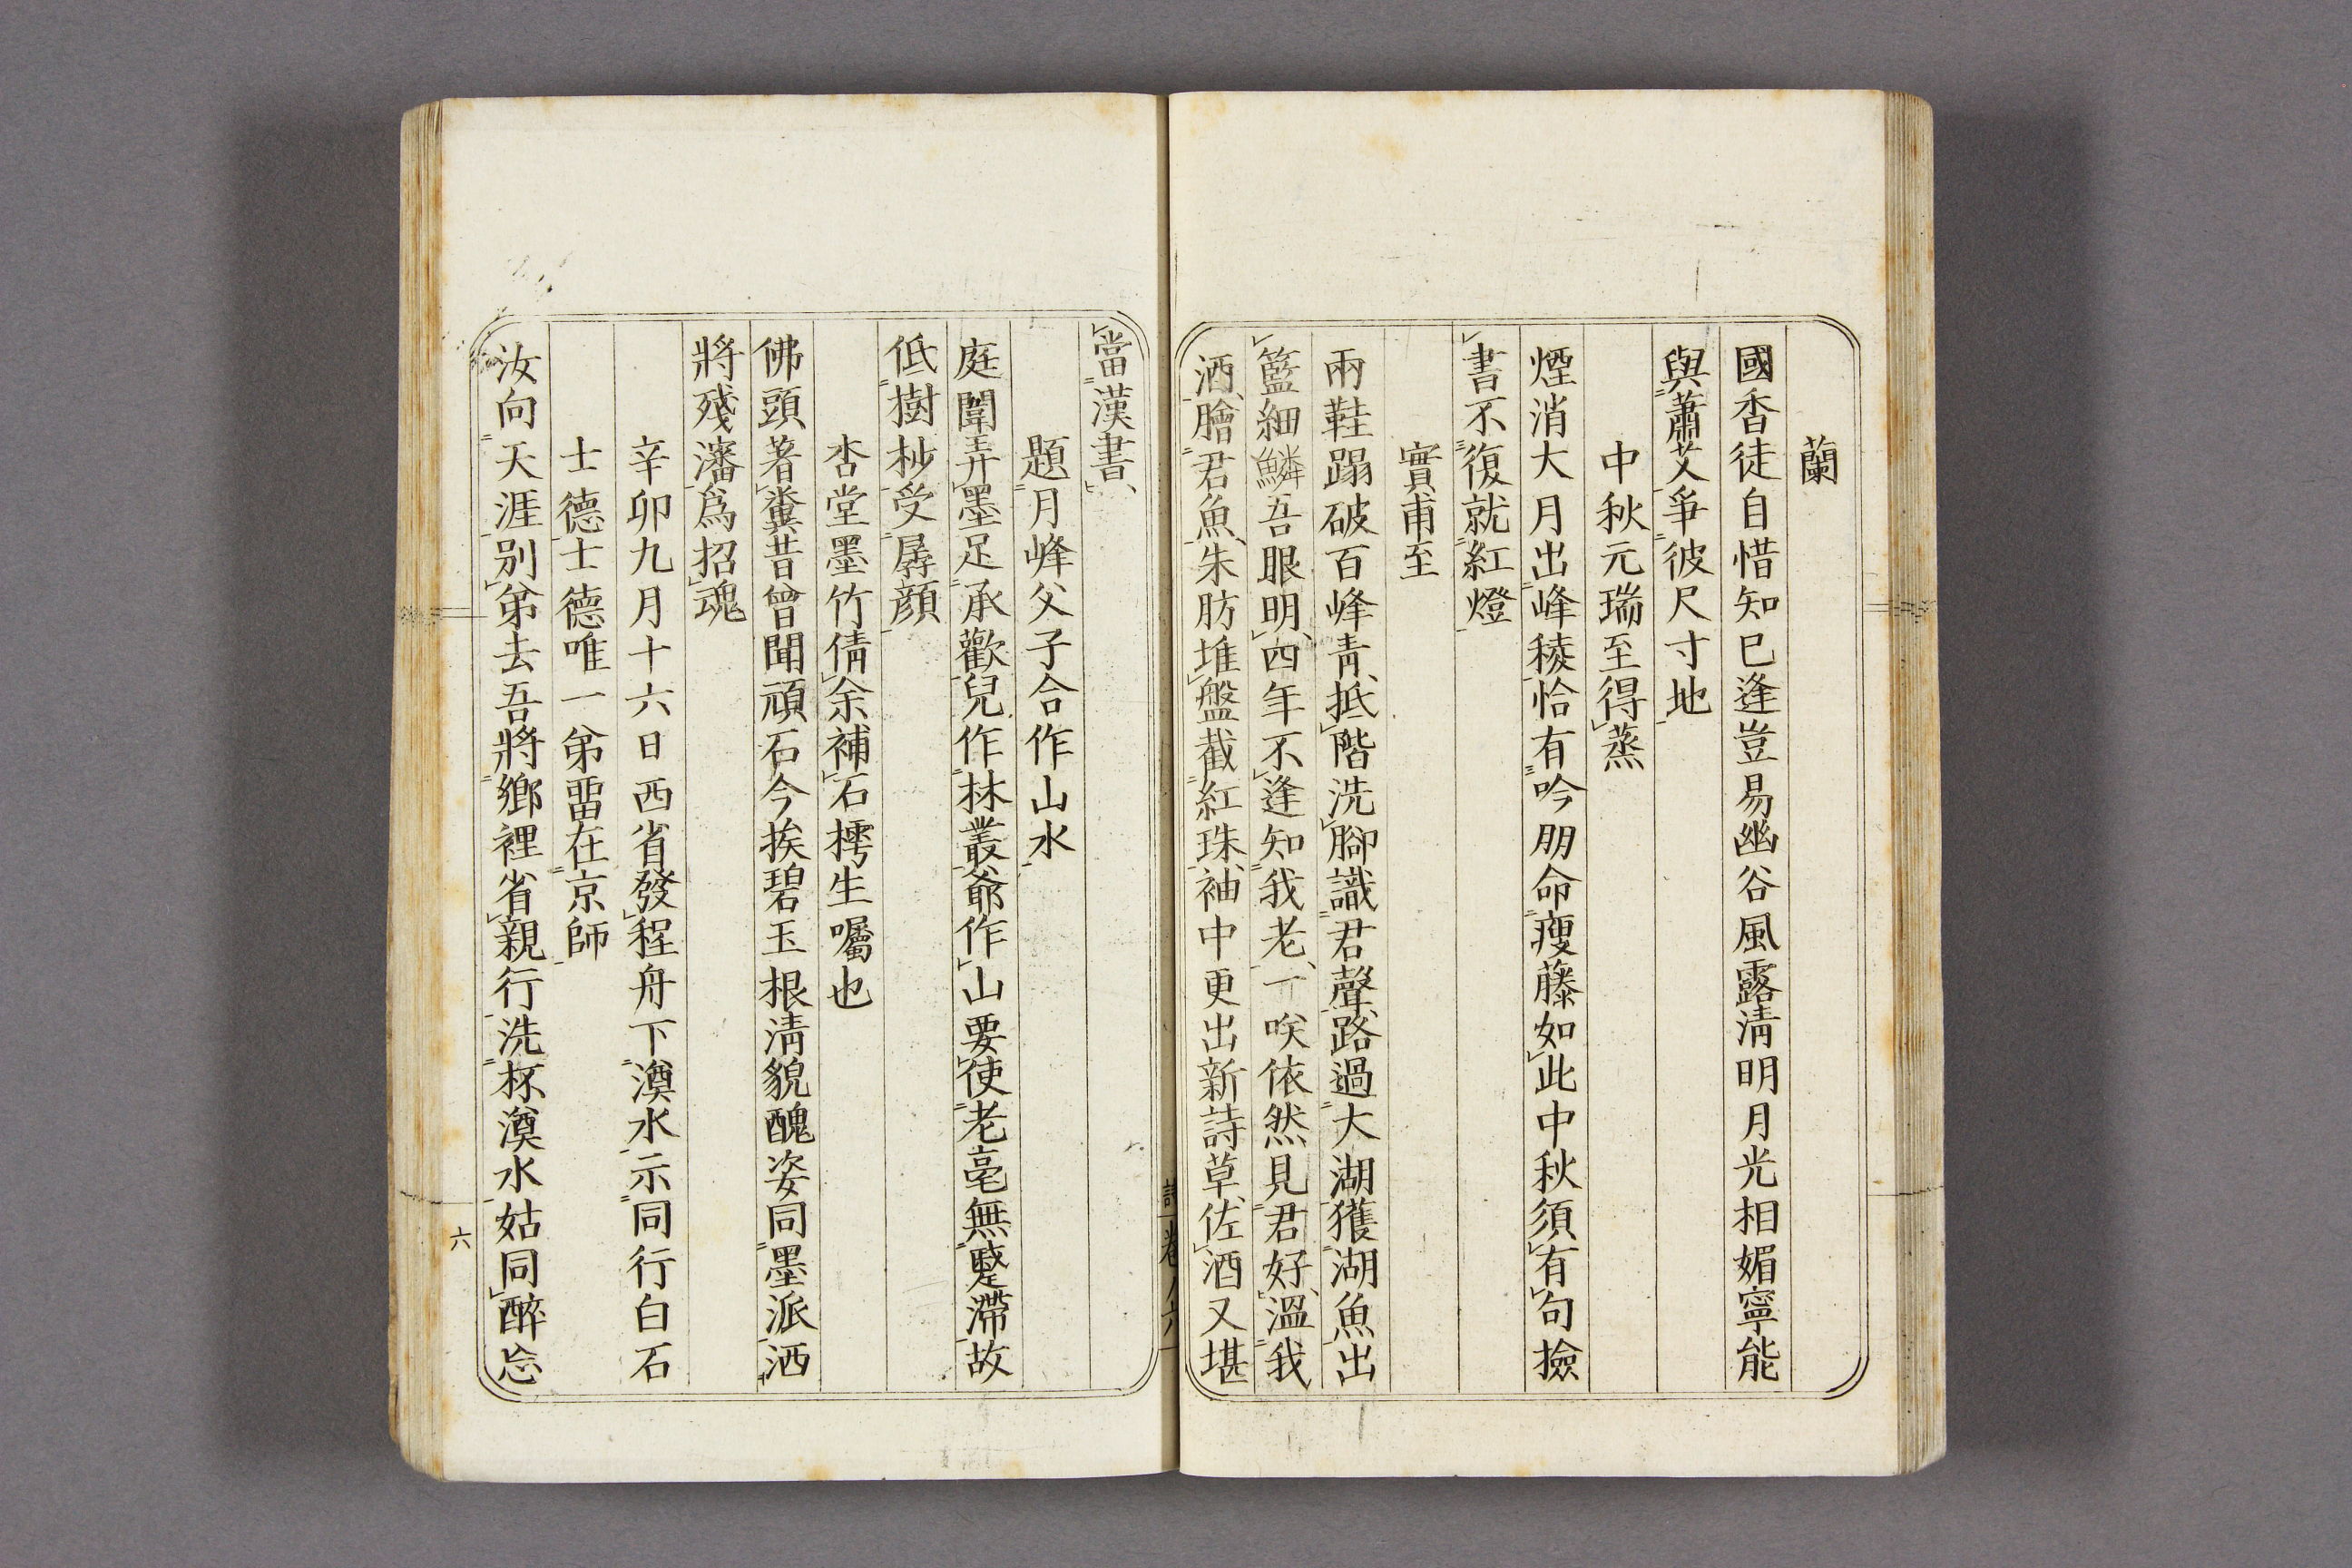 蘭
國香徒自惜知已逢豈易幽谷風露清明月光相媚寧能
與蕭艾爭彼尺寸地
中秋元瑞至得蒸
煙消大月出峰稜恰有吟朋命瘦藤如此中秋須有句撿
書不復就紅燈
實甫至
兩鞋蹋破百峰青抵階洗腳識君聲路過大湖獲湖魚出
籃細鱗吾眼明四年不逢知我老一咲依然見君好溫我
酒膾君魚朱肪堆盤截紅珠袖中更出新詩草佐酒又堪
當漢書
題月峰父子合作山水
庭闈弄墨足承歡兒作林叢爺作山要使老亳無蹇滯故
低樹杪受孱顔
杏堂墨竹倩余補石樗生囑也
佛頭著糞昔曾聞頑石今挨碧玉根淸貌醜姿同墨派洒
將殘瀋爲招魂
辛卯九月十六日西省發程舟下澳水示同行白石
士德士德唯一弟畱在京師
汝向天涯别弟去吾將鄉裡省親行洗杯澳水姑同醉忩
六